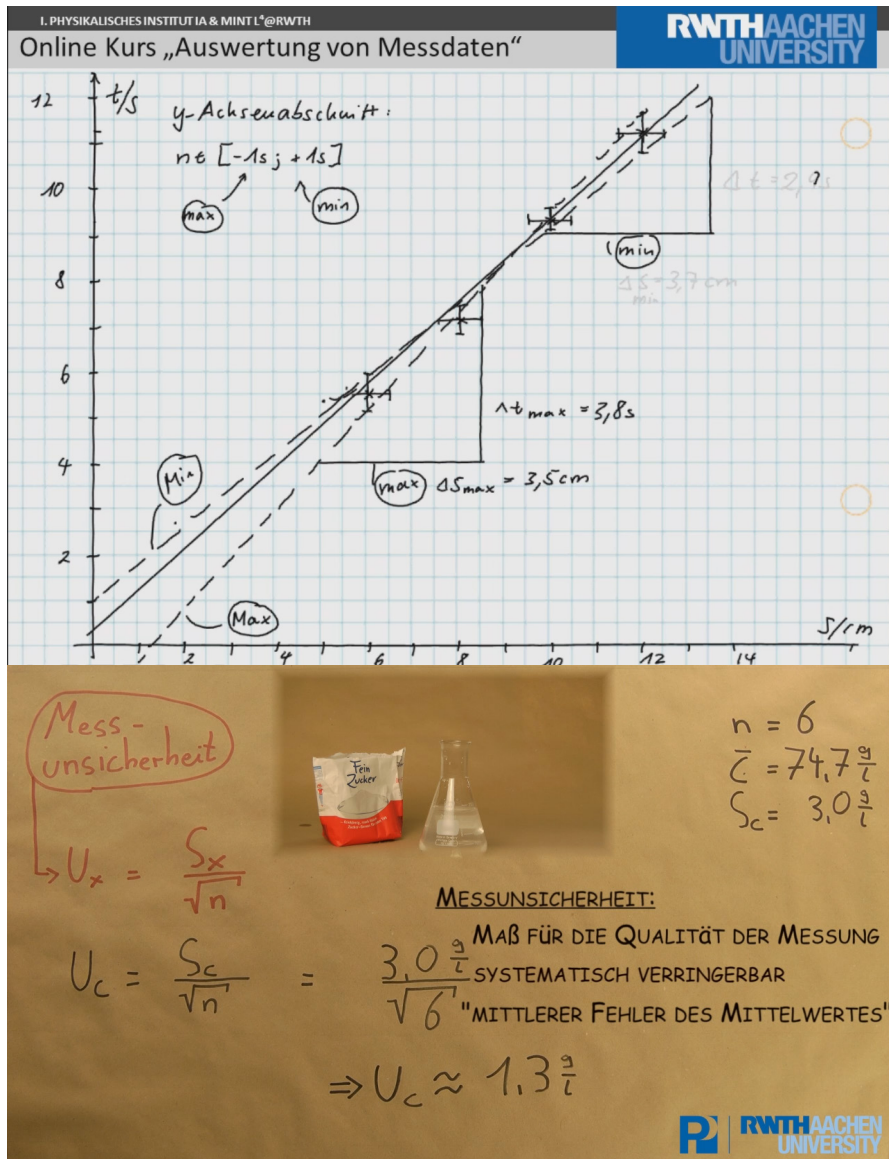 I. PHYSIKALISCHES INSTITUT IA & MINT L⁴@RWTH
Online Kurs „Auswertung von Messdaten“
RWTHAACHEN
UNIVERSITY
12
t/s
y-Achsenabschnitt:
nt [-1s; +1s]
max
min
10
?
Δt = 2,9s
min
8
Δs = 3,7 cm
min
6
Δt max = 3,8s
4
Min
max Δs max = 3,5 cm
2
Max
s/cm
2 4 6 8 10 12 14
Mess-
unsicherheit
Fein
Zucker
n = 6
c̄ = 74,7 g/l
Sc = 3,0 g/l
Ux = Sx/√n
MESSUNSICHERHEIT:
MAß FÜR DIE QUALITÄT DER MESSUNG
SYSTEMATISCH VERRINGERBAR
"MITTLERER FEHLER DES MITTELWERTES"
Uc = Sc/√n = 3,0 g/l/√6
⇒ Uc ≈ 1,3 g/l
RWTHAACHEN
UNIVERSITY